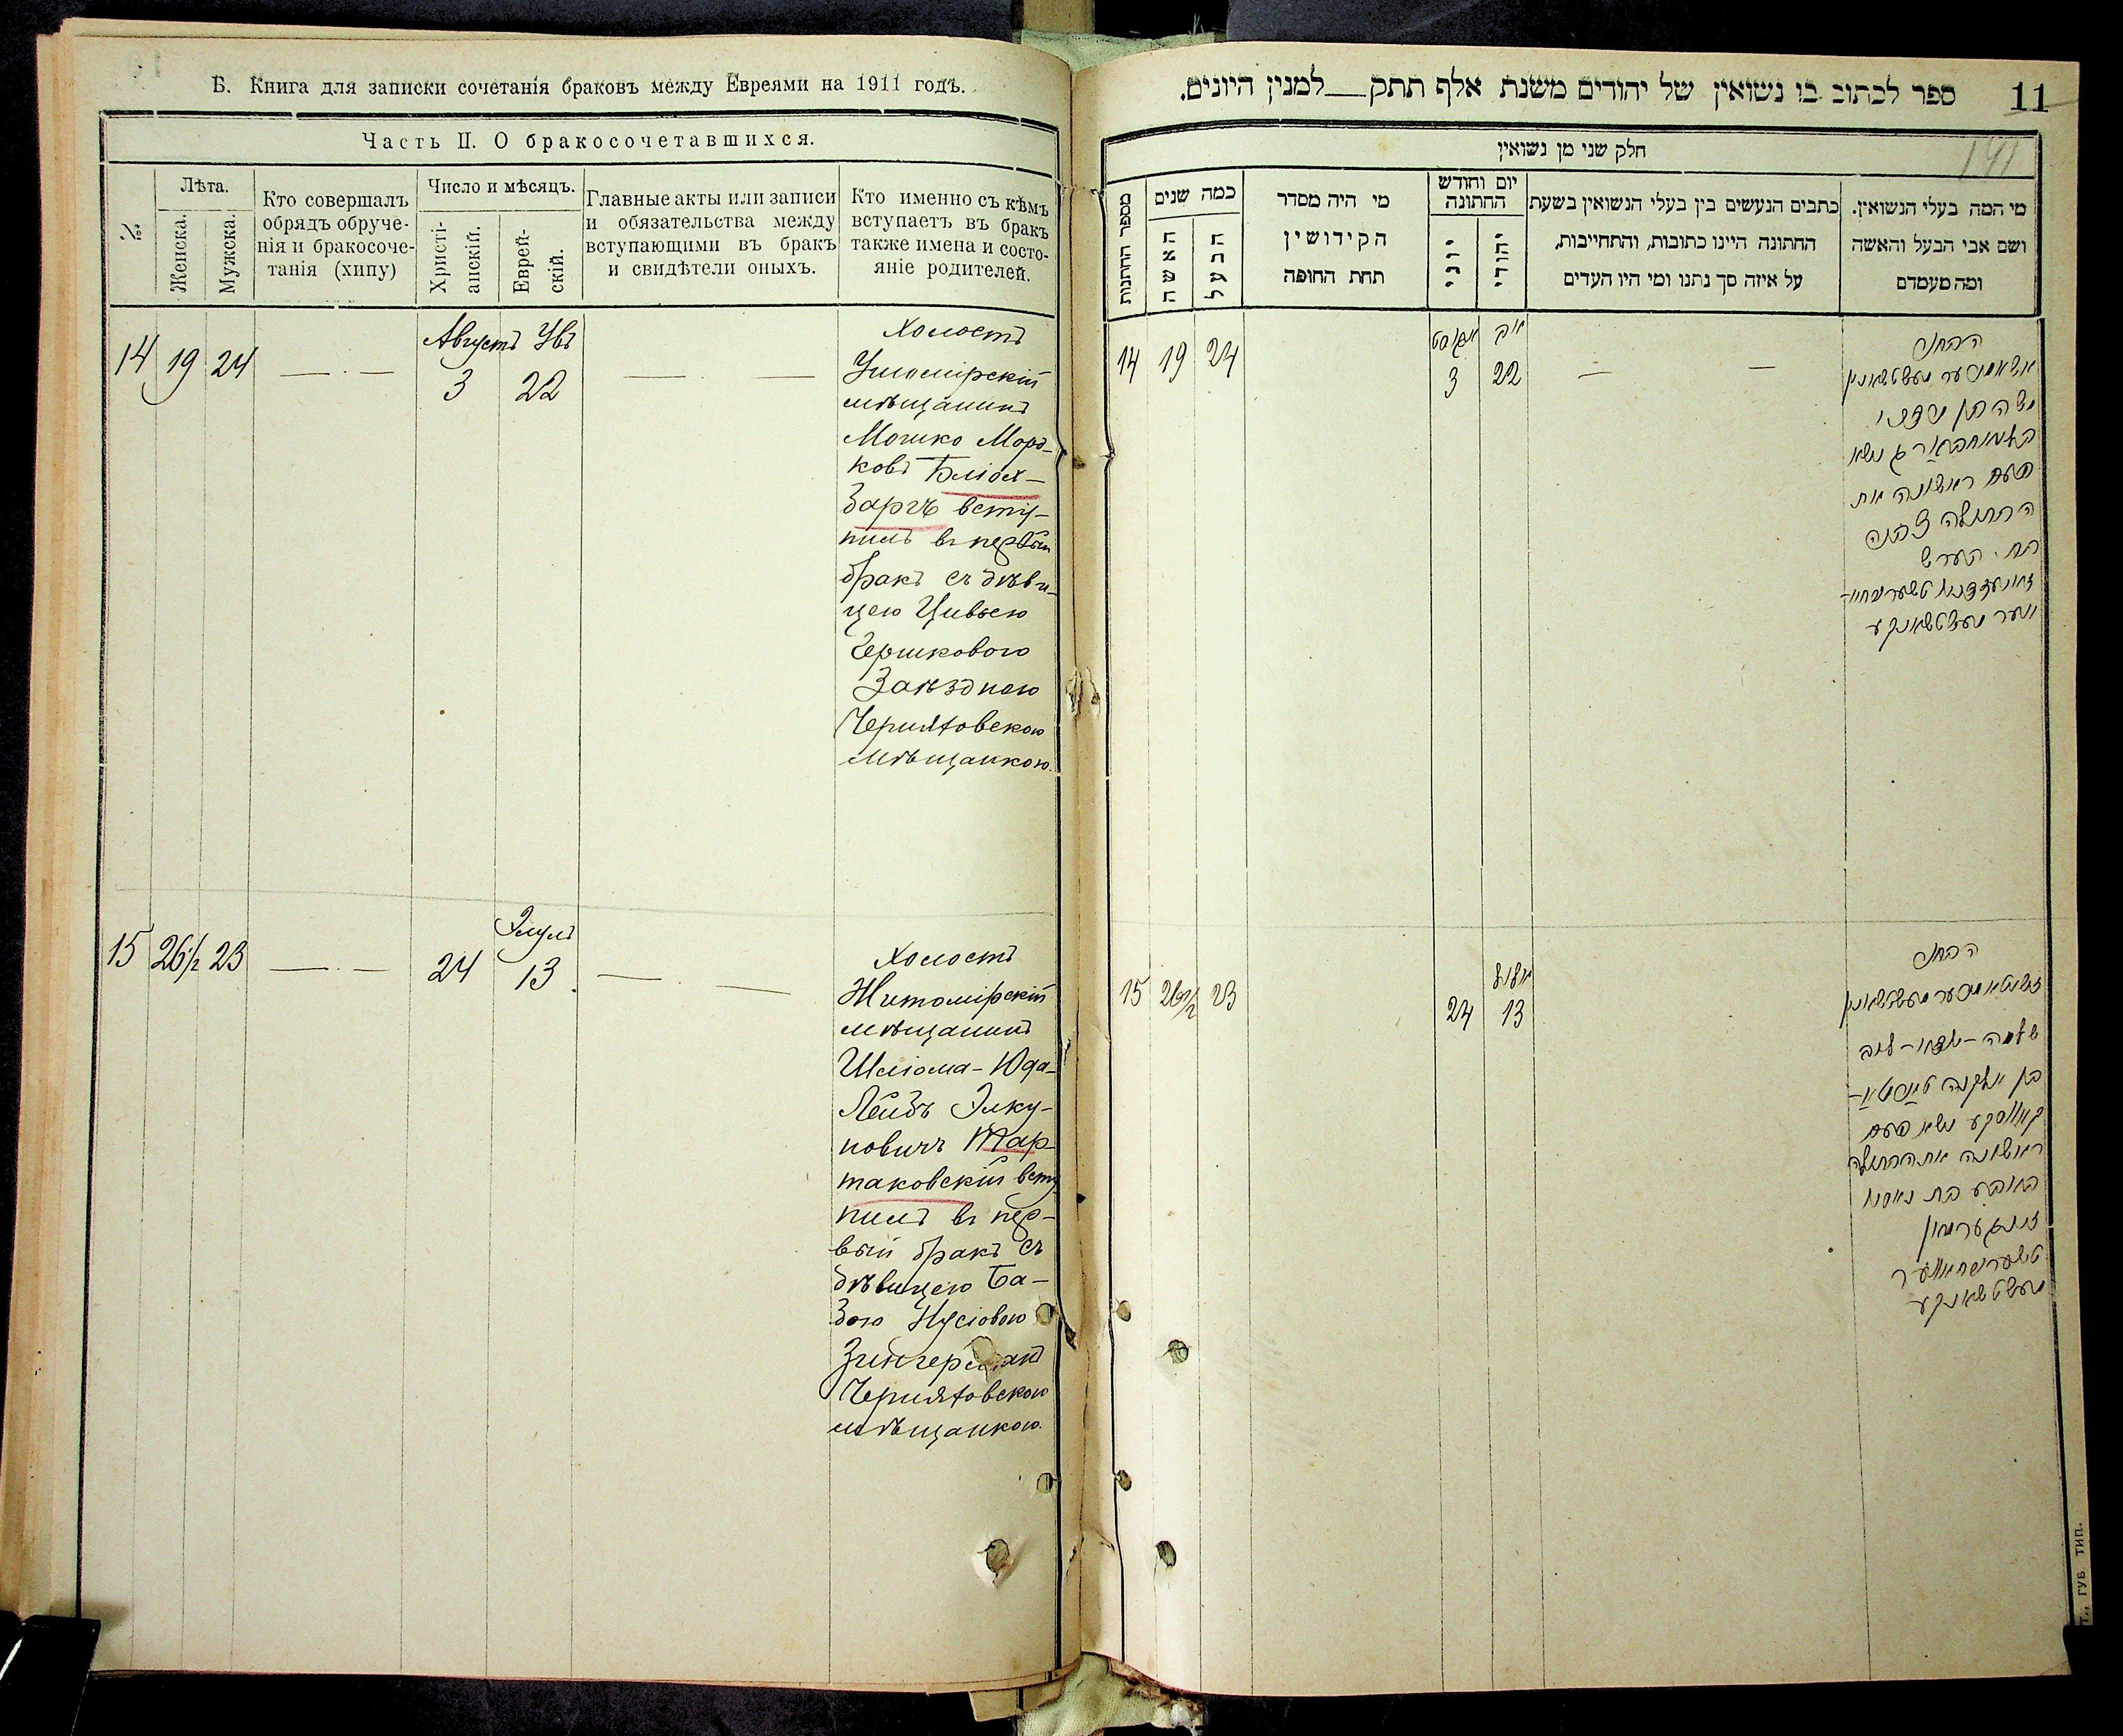 Б. Книга для записки сочетанія браковъ между Евреями на 1911 годъ.
Часть II. О бракосочетавшихся.
№
Лѣта.
Женска.
Мужска.
Кто совершалъ
обрядъ обруче-
нія и бракосоче-
танія (хипу)
Число и мѣсяцъ.
Христі-
анскій.
Еврей-
скій.
Главные акты или записи
и обязательства между
вступающими въ бракъ
и свидѣтели оныхъ.
Кто именно съ кѣмъ
вступаетъ въ бракъ
также имена и состо-
яніе родителей.
14 19 24
Августъ
3 22
Холостъ
мѣщанинъ
Мошко Морд-
ковъ
заргъ всту-
пилъ въ первый
бракъ съ дѣви-
цею Цивьею
Гершковою
Заѣздною
Черняховскою
мѣщанкою.
15 26½ 23
Элулъ
24 13
Холостъ
Житомірскій
мѣщанинъ
Шліома-Юда-
Лейбъ Элку-
новичъ Тар-
таковскій всту
пилъ въ пер-
вый бракъ съ
дѣвицею Ба-
бою Нусіовою
Зингерманъ
Черняховскою
мѣщанкою.
ספר לכתוב בו נשואין של יהודים משנת אלף תתק למנין היונים.
11
191
חלק שני מן נשואין
מספר החתונות
כמה שנים
האשה
הבעל
מי היה מסדר
הקידושין
תחת החופה
יום וחודש
החתונה
יוני
יהודי
כתבים הנעשים בין בעלי הנשואין בשעת
החתונה היינו כתובות, והתחייבות,
על איזה סך נתנו ומי היו העדים
מי המה בעלי הנשואין.
ושם אבי הבעל והאשה
ומה מעמדם
14 19 24
אוגוסט אב
3 22
הבחור
נשא
פעם ראשונה את
הבתולה צביה
בת הערש
15 26½ 23
אלול
24 13
הבחור
שלמה-יודא-ליב
בן אלקנה
נשא פעם
ראשונה את הבתולה
בת
זינגערמאן
Т., ГУБ ТИП.